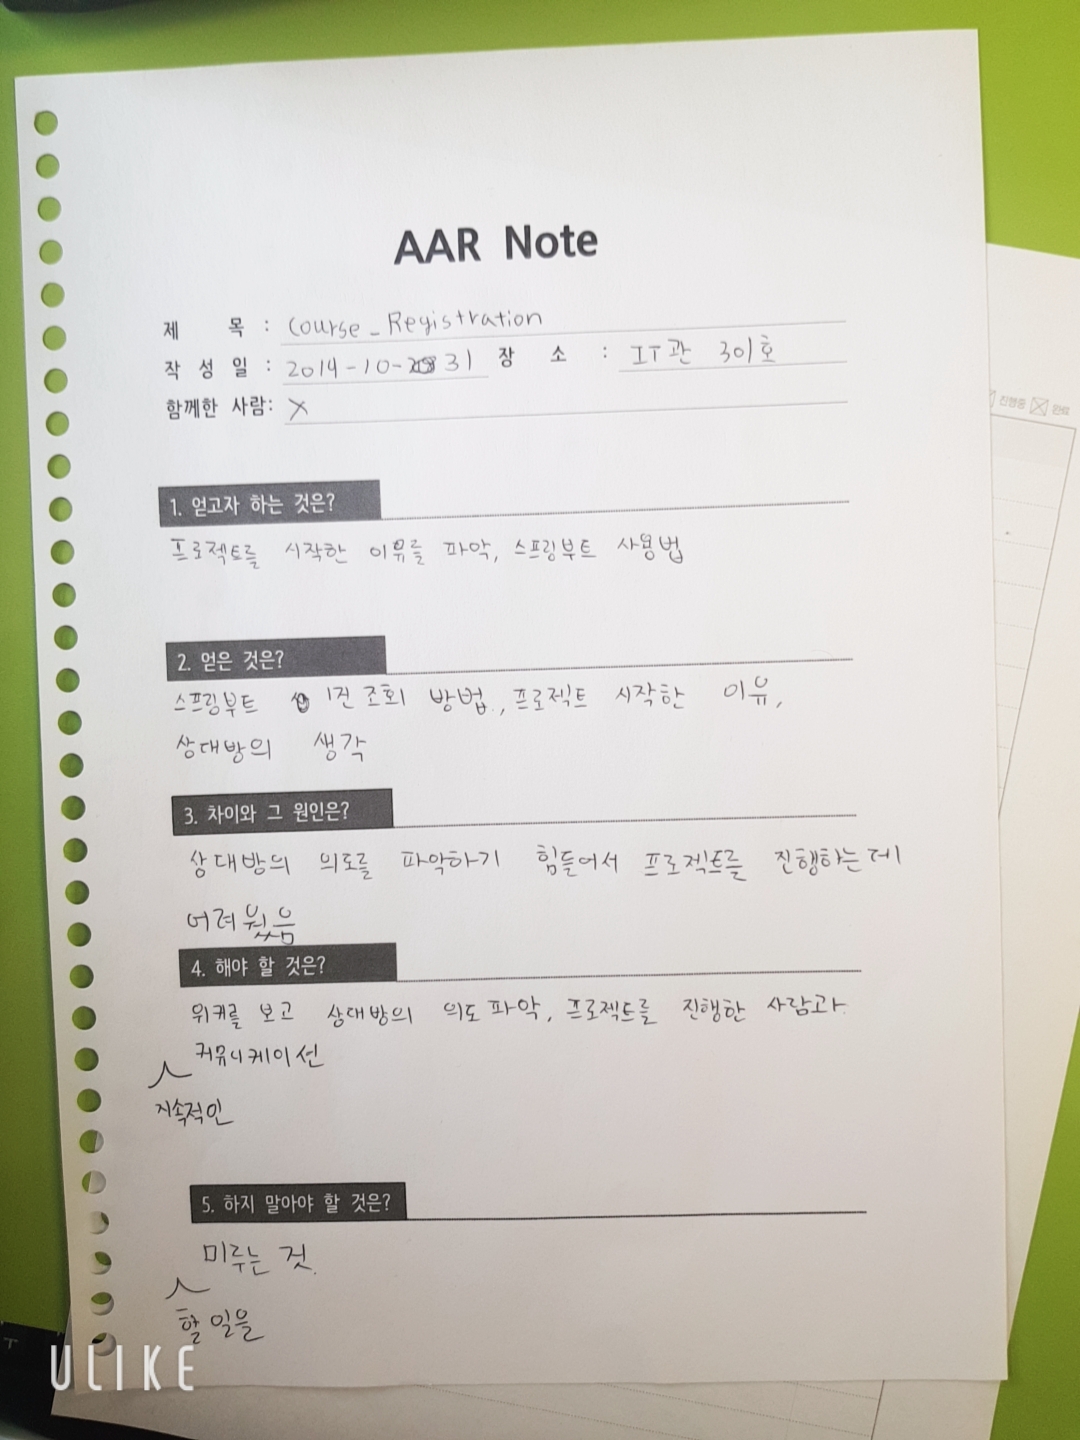 AAR Note
제 목 : Course_Registration
작 성 일 : 2014-10-31 장 소 : IT관 301호
함께한 사람: X
진행중 완료
1. 얻고자 하는 것은?
프로젝트를 시작한 이유를 파악, 스프링부트 사용법
2. 얻은 것은?
스프링부트 1건 조회 방법, 프로젝트 시작한 이유,
상대방의 생각
3. 차이와 그 원인은?
상대방의 의도를 파악하기 힘들어서 프로젝트를 진행하는데
어려웠음
4. 해야 할 것은?
위키를 보고 상대방의 의도 파악, 프로젝트를 진행한 사람과
커뮤니케이션
지속적인
5. 하지 말아야 할 것은?
미루는 것.
할 일을
ULIKE